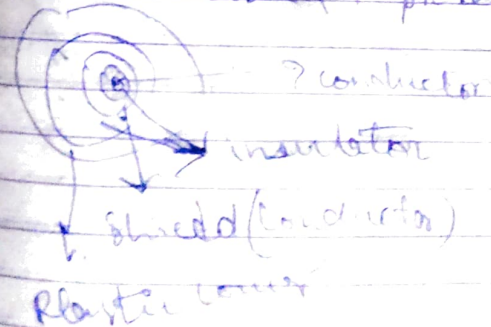 ? conductor
insulator
Shield (Conductor)
Plastic cover